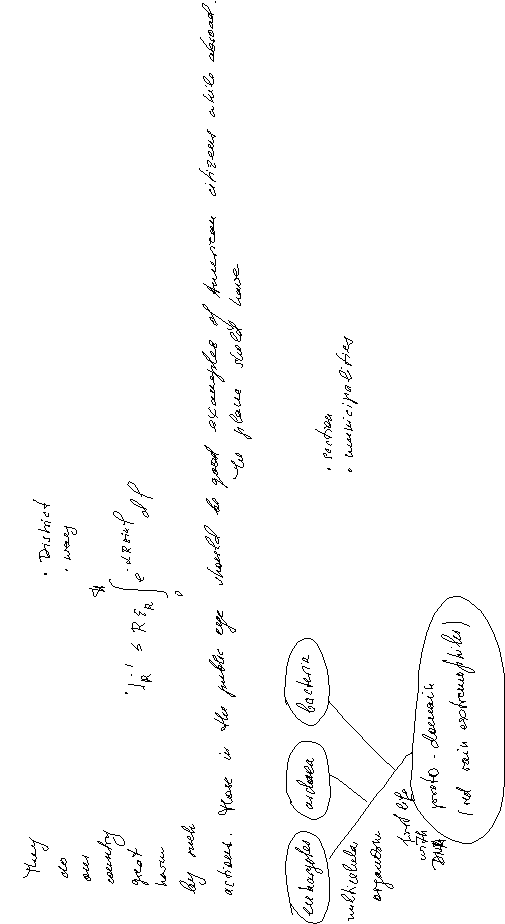 They
do
our
country
great
harm
by such
actions. Those in the public eye should be good examples of American citizens while abroad.
the plane should have
• District
• way
≤ R ε_R ∫ e^{-αR sin φ} dφ
• section
• municipalities
eukaryotes
archaea
bacteria
multicellular
organism
first life
with
DNA
proto-domain
(red rain extremophiles)